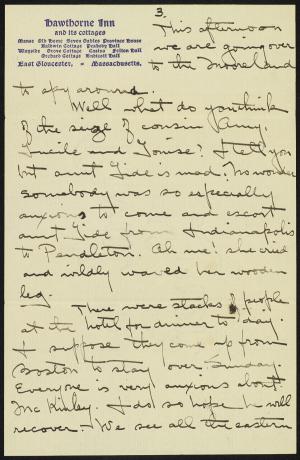 Hawthorne Inn
and its cottages
Manse Old Home Seven Gables Province House
Baldwin Cottage Peabody Hall
Wayside Grove Cottage Casino Felton Hall
Orchard Cottage Endicott Hall
East Gloucester, - Massachusetts.
3.
This afternoon
we are going over
to the Moorland
to spy around.
Well what do you think
of the seige of cousin Amy,
Lucile and Louise? I tell you
but aunt Tide is mad. No wonder
somebody was so especially
anxious to come and escort
aunt Tide from Indianapolis
to Pendleton. Oh me! she cried
and wildly waved her wooden
leg.
There were stacks of people
at the hotel for dinner to day.
I suppose they come up from
Boston to stay over Sunday.
Everyone is very anxious about
McKinley. I do so hope he will
recover. We see all the eastern